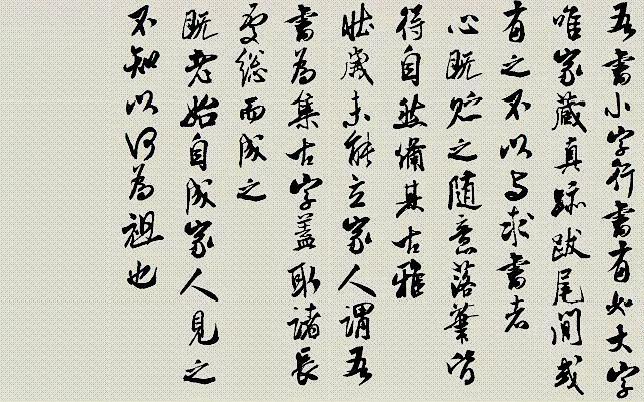 吾書小字行書有如大字
唯家藏真跡跋尾間或
有之不以與求書者
心既貯之隨意落筆皆
得自然備其古雅
壯歲未能立家人謂吾
書為集古字蓋取諸長
處總而成之
既老始自成家人見之
不知以何為祖也